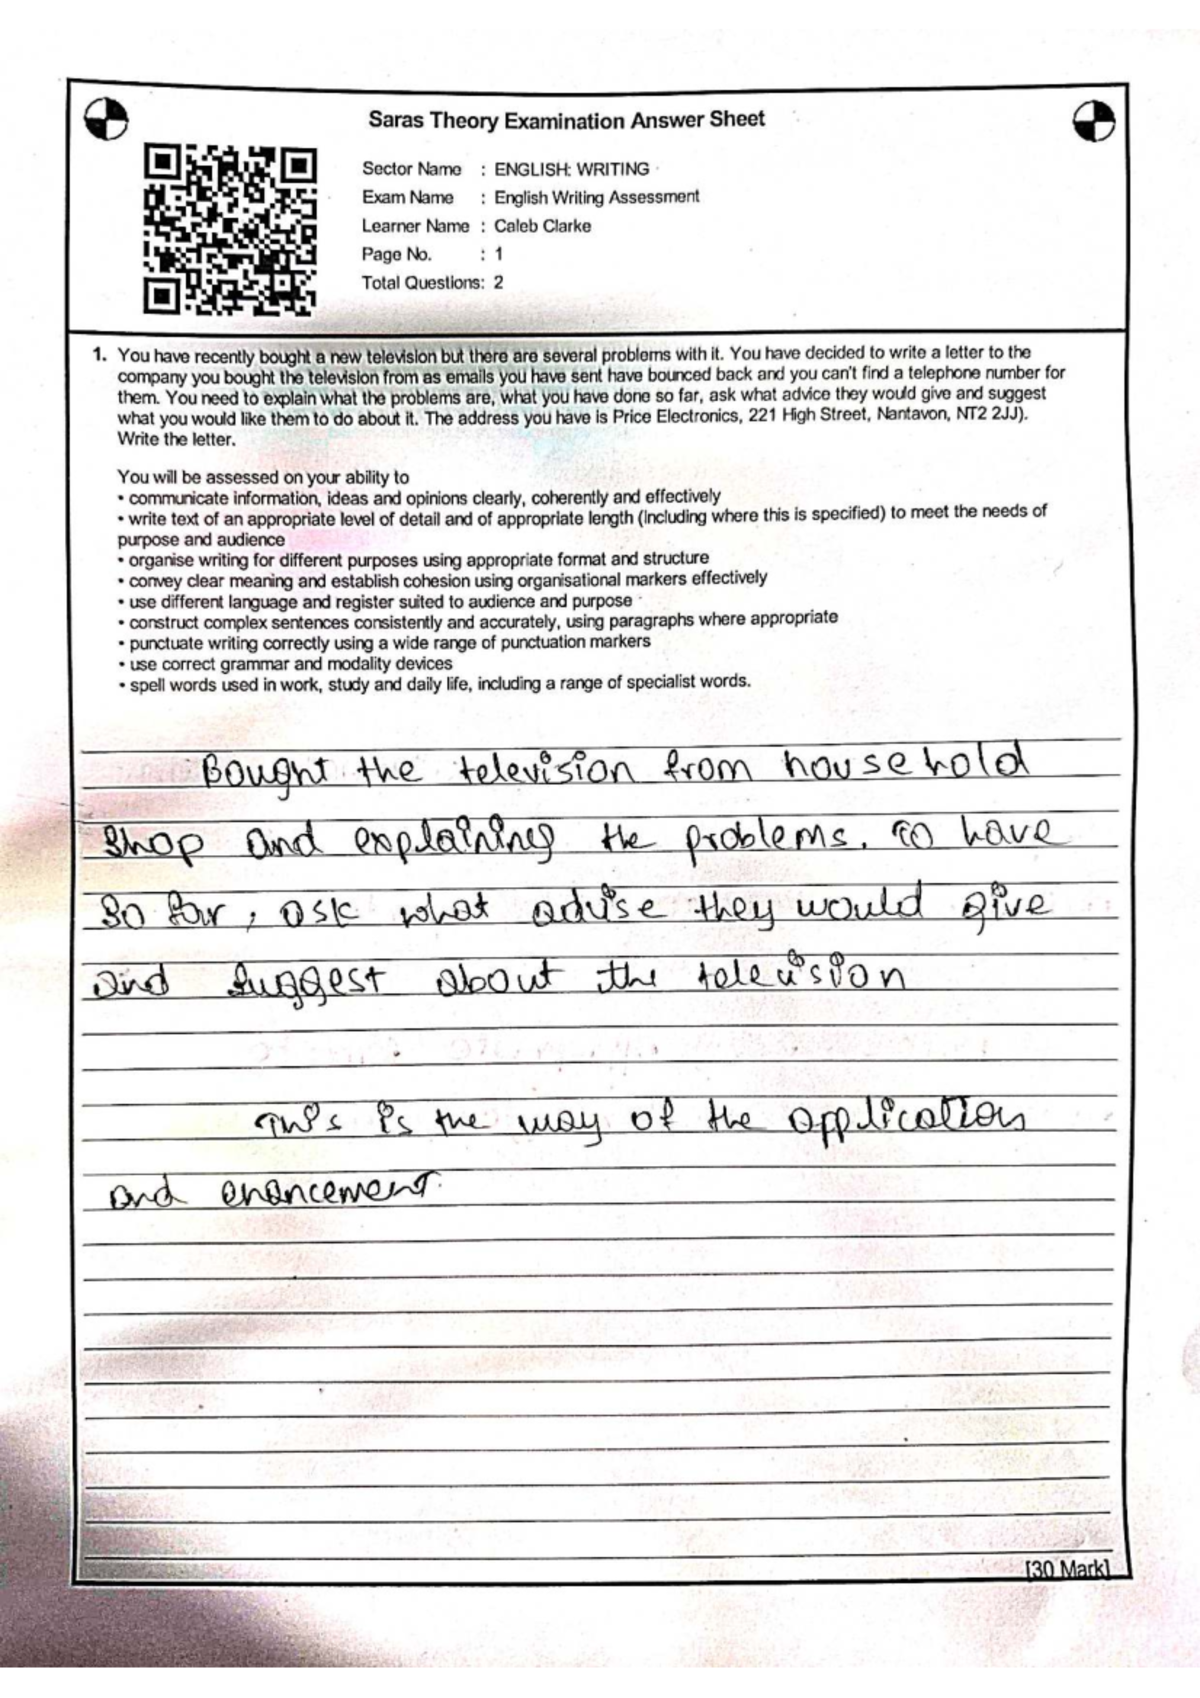 Saras Theory Examination Answer Sheet
Sector Name : ENGLISH: WRITING
Exam Name : English Writing Assessment
Learner Name : Caleb Clarke
Page No. : 1
Total Questions: 2
1. You have recently bought a new television but there are several problems with it. You have decided to write a letter to the
company you bought the television from as emails you have sent have bounced back and you can't find a telephone number for
them. You need to explain what the problems are, what you have done so far, ask what advice they would give and suggest
what you would like them to do about it. The address you have is Price Electronics, 221 High Street, Nantavon, NT2 2JJ).
Write the letter.
You will be assessed on your ability to
• communicate information, ideas and opinions clearly, coherently and effectively
• write text of an appropriate level of detail and of appropriate length (including where this is specified) to meet the needs of
purpose and audience
• organise writing for different purposes using appropriate format and structure
• convey clear meaning and establish cohesion using organisational markers effectively
• use different language and register suited to audience and purpose
• construct complex sentences consistently and accurately, using paragraphs where appropriate
• punctuate writing correctly using a wide range of punctuation markers
• use correct grammar and modality devices
• spell words used in work, study and daily life, including a range of specialist words.
Bought the television from household
shop and explaining the problems. to have
so far, ask what advise they would give
and suggest about the television
This is the way of the application
and enancement.
[30 Mark]